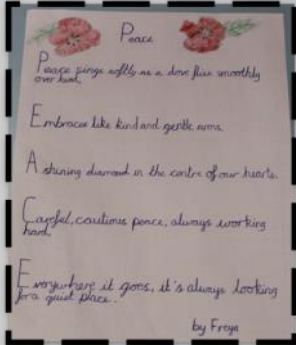 Peace
Peace sings softly as a dove flies smoothly
over land,
Embraces like kind and gentle arms.
A shining diamond in the centre of our hearts.
Careful, cautious peace, always working
hard,
Everywhere it goes, it's always looking
for a quiet place.
by Freya